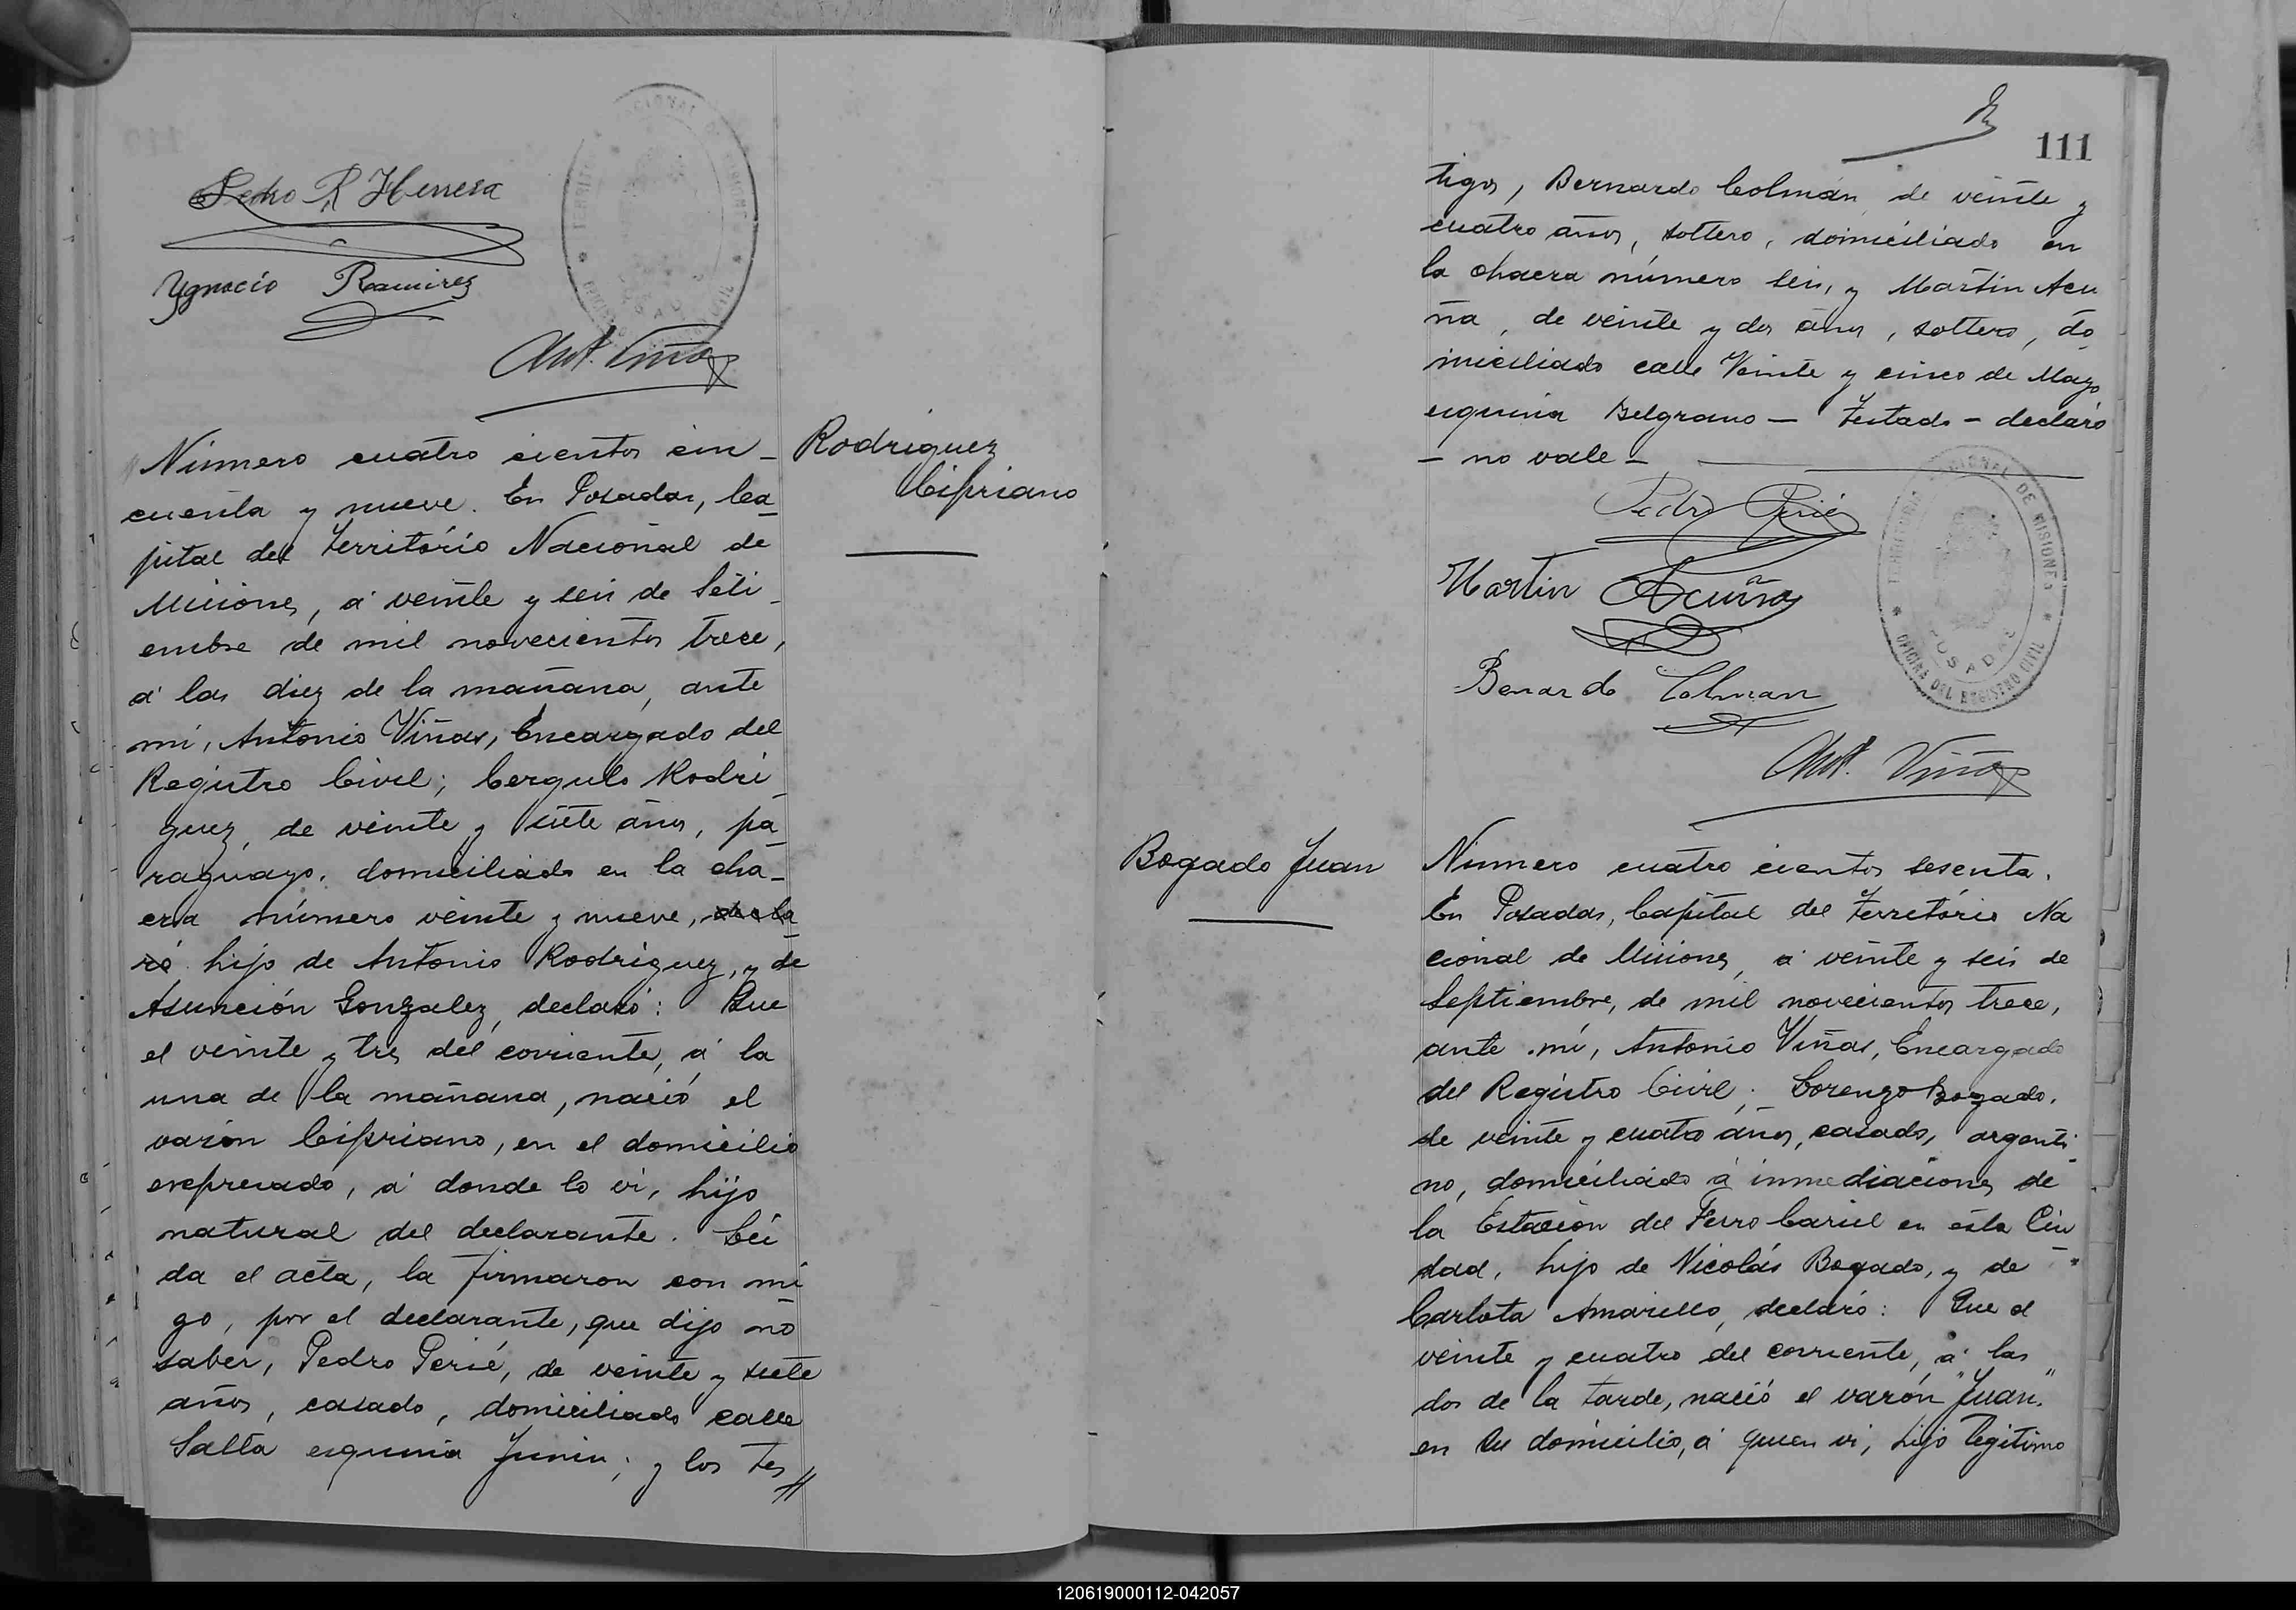 Pedro R Herrera
Ygnacio Ramirez
Ant. Viñas
Número cuatro cientos cin-
cuenta y nueve. En Posadas, Ca-
pital del Territorio Nacional de
Misiones, á veinte y seis de Seti-
embre de mil novecientos trece,
á las diez de la mañana, ante
mi, Antonio Viñas, Encargado del
Registro Civil; Cergulo Rodri-
guez, de veinte y siete años, pa-
raguayo, domiciliado en la cha-
cra número veinte y nueve, decla-
ró hijo de Antonio Rodriguez, y de
Asunción Gonzalez, declaró: Que
el veinte y tres del corriente, á la
una de la mañana, nació el
varón Cipriano, en el domicilio
expresado, á donde lo vi, hijo
natural del declarante. Lei
da el acta, la firmaron con mi
go, por el declarante, que dijo no
saber, Pedro Perié, de veinte y siete
años, casado, domiciliado calle
Salta esquina Junin; y los tes
Rodriguez
Cipriano
111
tigos, Bernardo Colmán, de veinte y
cuatro años, soltero, domiciliado en
la chacra número seis, y Martin Acu
ña, de veinte y dos años, soltero, do-
miciliado calle Veinte y cinco de Mayo
esquina Belgrano — Testado - declaró
- no vale -
Pedro Perié
Martin Acuña
Benardo Colman
Ant. Viñas
TERRITORIO NACIONAL DE MISIONES
POSADAS
OFICINA DEL REGISTRO CIVIL
Bogado Juan
Número cuatro cientos sesenta.
En Posadas, Capital del Territorio Na
cional de Misiones, á veinte y seis de
Septiembre, de mil novecientos trece,
ante mi, Antonio Viñas, Encargado
del Registro Civil; Lorenzo Bogado,
de veinte y cuatro años, casado, argenti-
no, domiciliado á inmediaciones de
la Estación del Ferro Carril en esta Ciu
dad, hijo de Nicolás Bogado, y de
Carlota Amarello, declaró: Que el
veinte y cuatro del corriente, á las
dos de la tarde, nació el varón "Juan",
en su domicilio, á quien vi, hijo legitimo
120619000112-042057